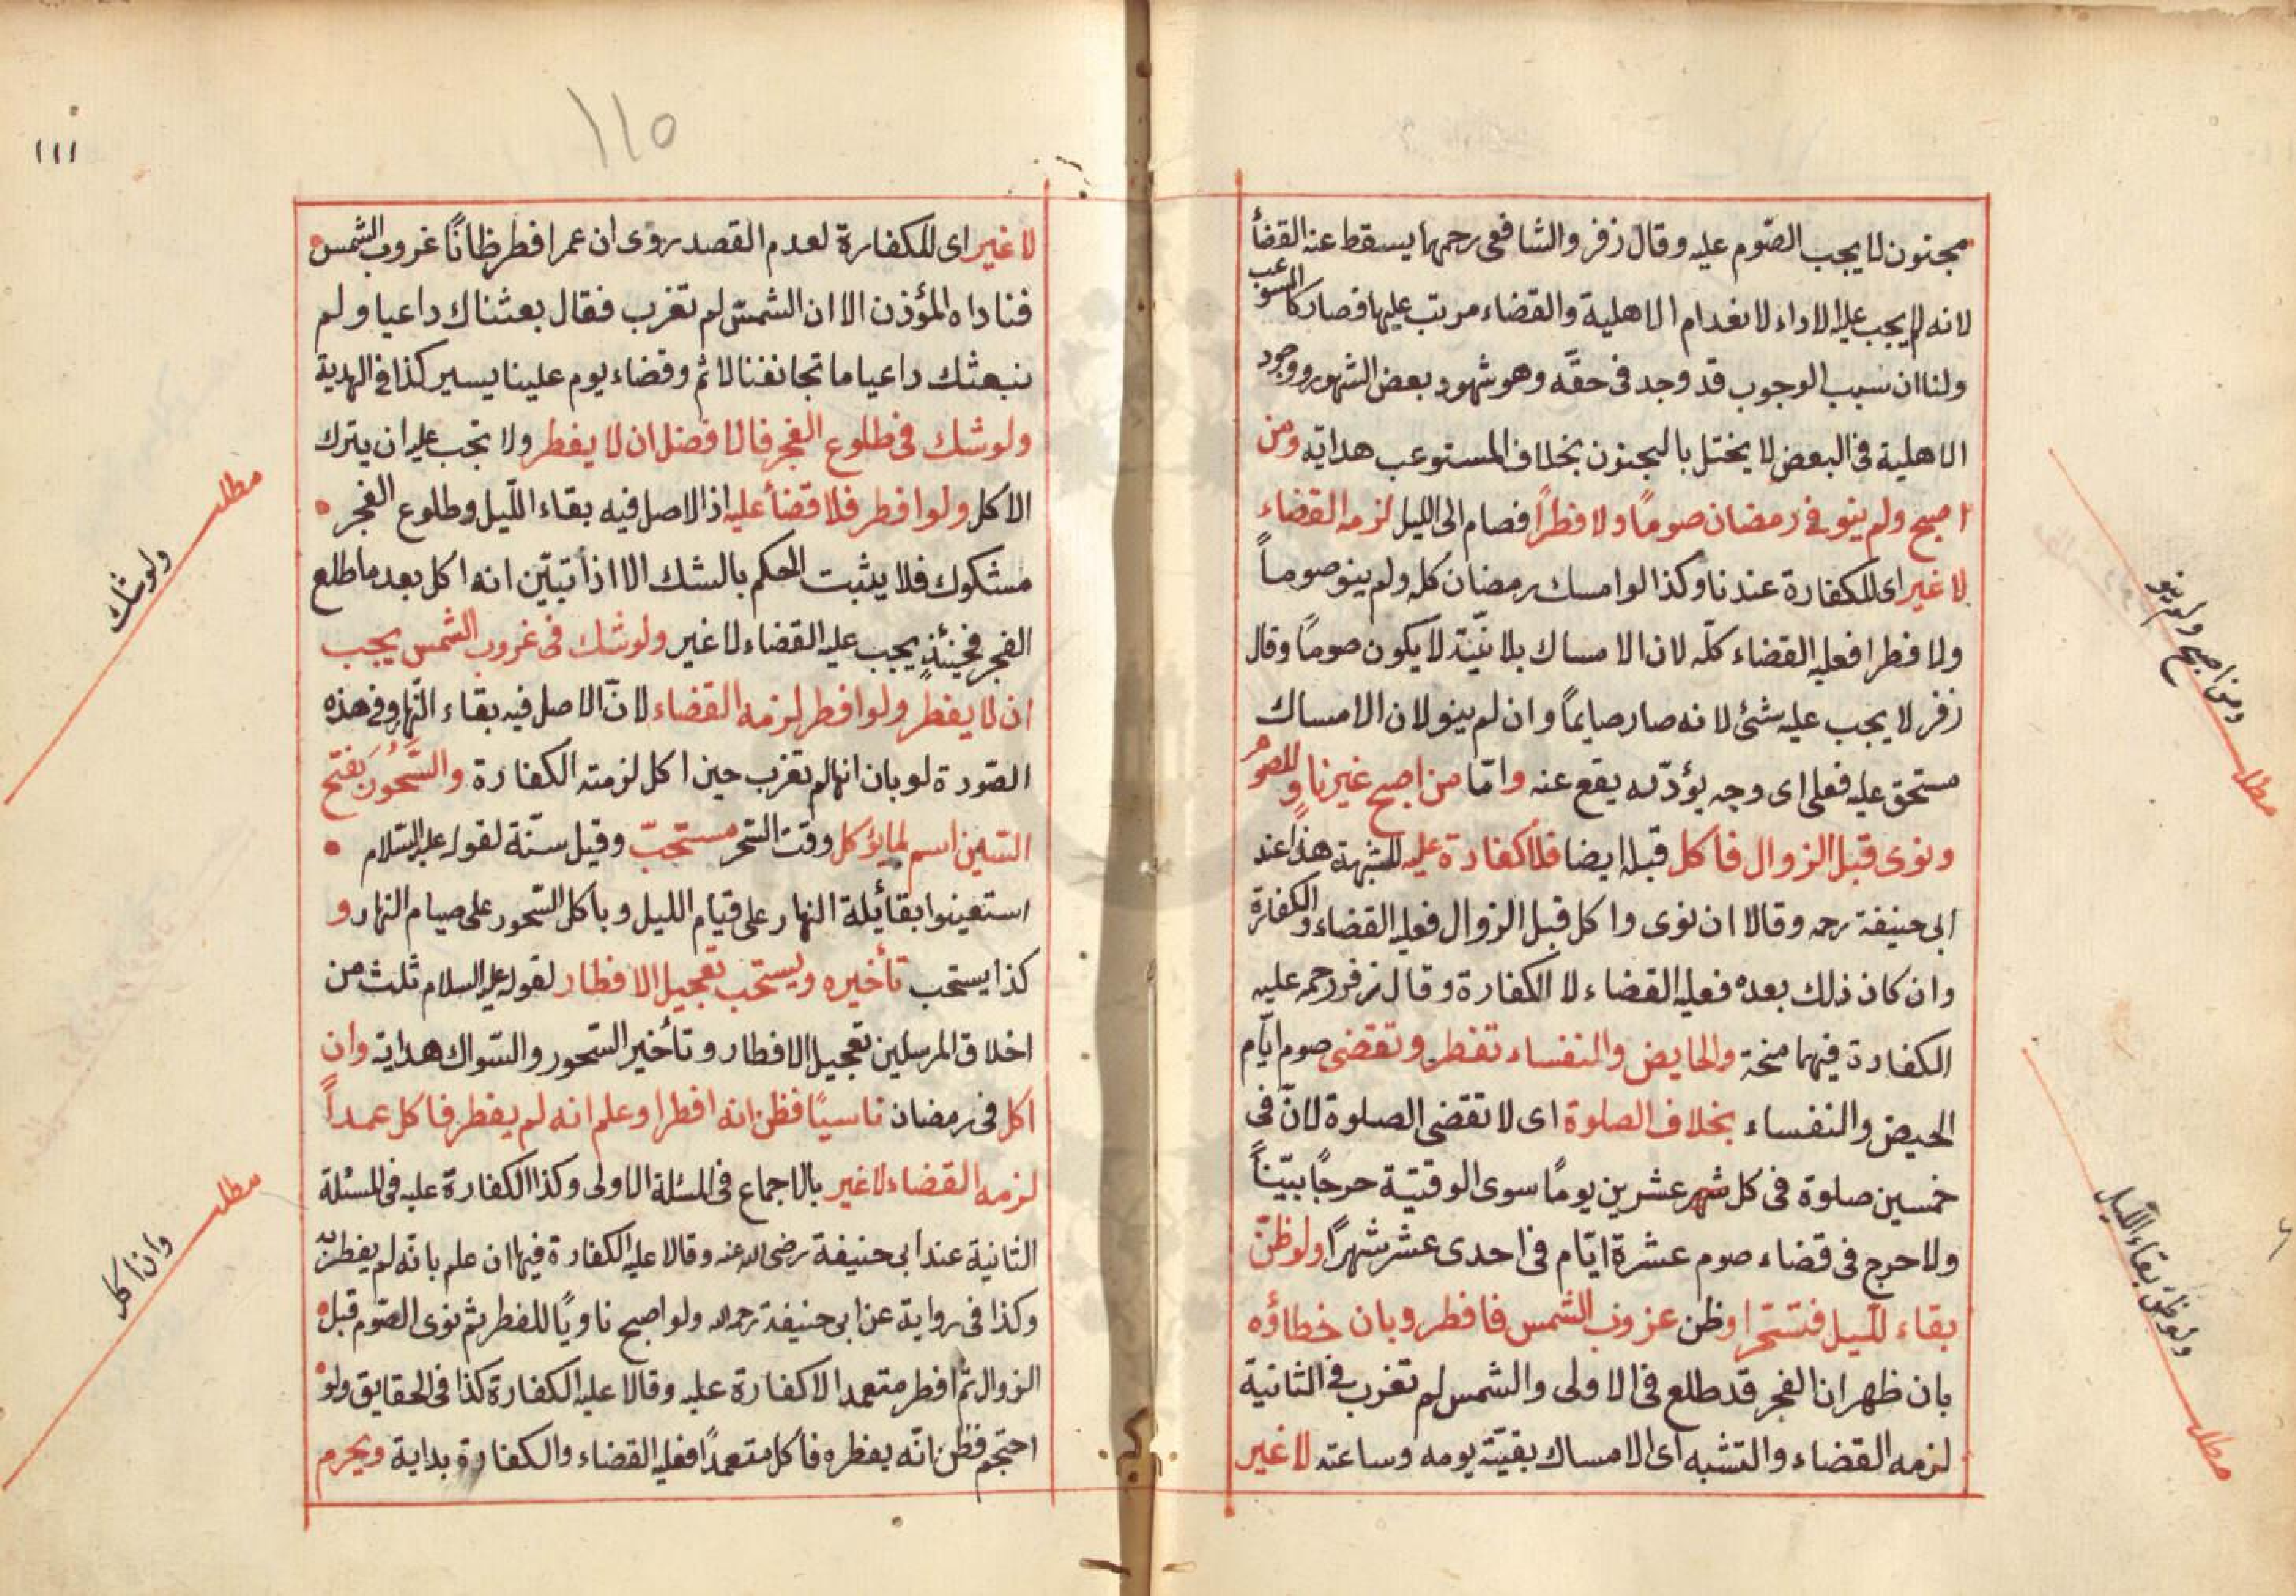 مجنون لا يجب الصّوم عليه وقال زفر والشافعى رحمهما يسقط عنه القضأ
لانه لم يجب عليه الاداء لانعدام الاهلية والقضاء مرتب عليها فصار كالمستوعب
ولنا ان سبب الوجوب قد وجد فى حقّه وهو شهود بعض الشهور ووجود
الاهلية فى البعض لا يختل بالجنون بخلاف المستوعب هدايه ومن
اصبح ولم ينو فى رمضان صومًا ولا فطرًا فصام الى الليل لزمه القضاء
لا غير اى الكفارة عندنا وكذا لو امسك رمضان كله ولم ينو صوماً
ولا فطرا فعليه القضاء كلّه لان الامساك بلا نيّة لا يكون صومًا وقال
زفر لا يجب عليه شئ لانه صار صايماً وان لم ينو لان الامساك
مستحق عليه فعلى اى وجه يؤدّيه يقع عنه وامّا من اصبح غير ناوٍ للصوم
ونوى قبل الزوال فاكل قبله ايضا فلا كفارة عليه للشبهة هذا عند
ابى حنيفة رحمه وقالا ان نوى واكل قبل الزوال فعليه القضاء والكفارة
وان كان ذلك بعده فعليه القضاء لا الكفارة وقال زفر رحمه عليه
الكفارة فيهما منحة والحايض والنفساء تفطر وتقضى صوم ايّام
الحيض والنفساء بخلاف الصلوة اى لا تقضى الصلوة لانّ فى
خمسين صلوة فى كل شهر عشرين يومًا سوى الوقتيّة حرجًا بيّناً
ولا حرج فى قضاء صوم عشرة ايّام فى احدى عشر شهرًا ولو ظنّ
بقاء الليل فتسحّر او ظن غروب الشمس فافطر وبان خطاؤه
بان ظهر ان الفجر قد طلع فى الاولى والشمس لم تغرب فى الثانية
لزمه القضاء والتشبه اى الامساك بقيّة يومه وساعته لا غير
ومن اصبح ولم ينو
مطلب
ولو ظنّ بقاء الليل
مطلب
١١٥
١١١
لا غير اى الكفارة لعدم القصد روى ان عمر افطر ظانًا غروب الشمس
فناداه المؤذن الا ان الشمس لم تغرب فقال بعثناك داعيا ولم
نبعثك داعيا ما تجانفنا لاثم وقضاء يوم علينا يسير كذا فى الهدية
ولو شك فى طلوع الفجر فالافضل ان لا يفطر ولا تجب عليه ان يترك
الاكل ولو افطر فلا قضأ عليه اذ الاصل فيه بقاء الليل وطلوع الفجر
مشكوك فلا يثبت الحكم بالشك الا اذا تبيّن انه اكل بعد ما طلع
الفجر فحينئذٍ يجب عليه القضاء لا غير ولو شك فى غروب الشمس يجب
ان لا يفطر ولو افطر لزمه القضاء لانّ الاصل فيه بقاء النّهار وفى هذه
الصّورة لو بان انها لم تغرب حين اكل لزمته الكفارة والسَّحُور بفتح
السّين اسم لما يؤكل وقت السّحر مستحبّ وقيل سنّة لقوله عليه السّلام
استعينوا بقائلة النهار على قيام الليل وباكل السّحور على صيام النهار و
كذا يستحب تأخيره ويستحب تعجيل الافطار لقوله عليه السلام ثلث من
اخلاق المرسلين تعجيل الافطار وتأخير السّحور والسّواك هدايه وان
اكل فى رمضان ناسيًا فظن انه افطر او علم انه لم يفطر فاكل عمداً
لزمه القضاء لا غير بالاجماع فى المسئلة الاولى وكذا الكفارة عليه فى المسئلة
الثانية عند ابى حنيفة رضى الله عنه وقالا عليه الكفارة فيها ان علم بانّه لم يفطر
وكذا فى رواية عن ابى حنيفة رحمه الله ولو اصبح ناويًا للفطر ثم نوى الصّوم قبل
الزوال ثم افطر متعمدا لا كفارة عليه وقالا عليه الكفارة كذا فى الحقايق ولو
احتجم فظن انّه يفطره فاكل متعمدًا فعليه القضاء والكفارة بداية ويحرم
مطلب
ولو شك
مطلب
وان اكل